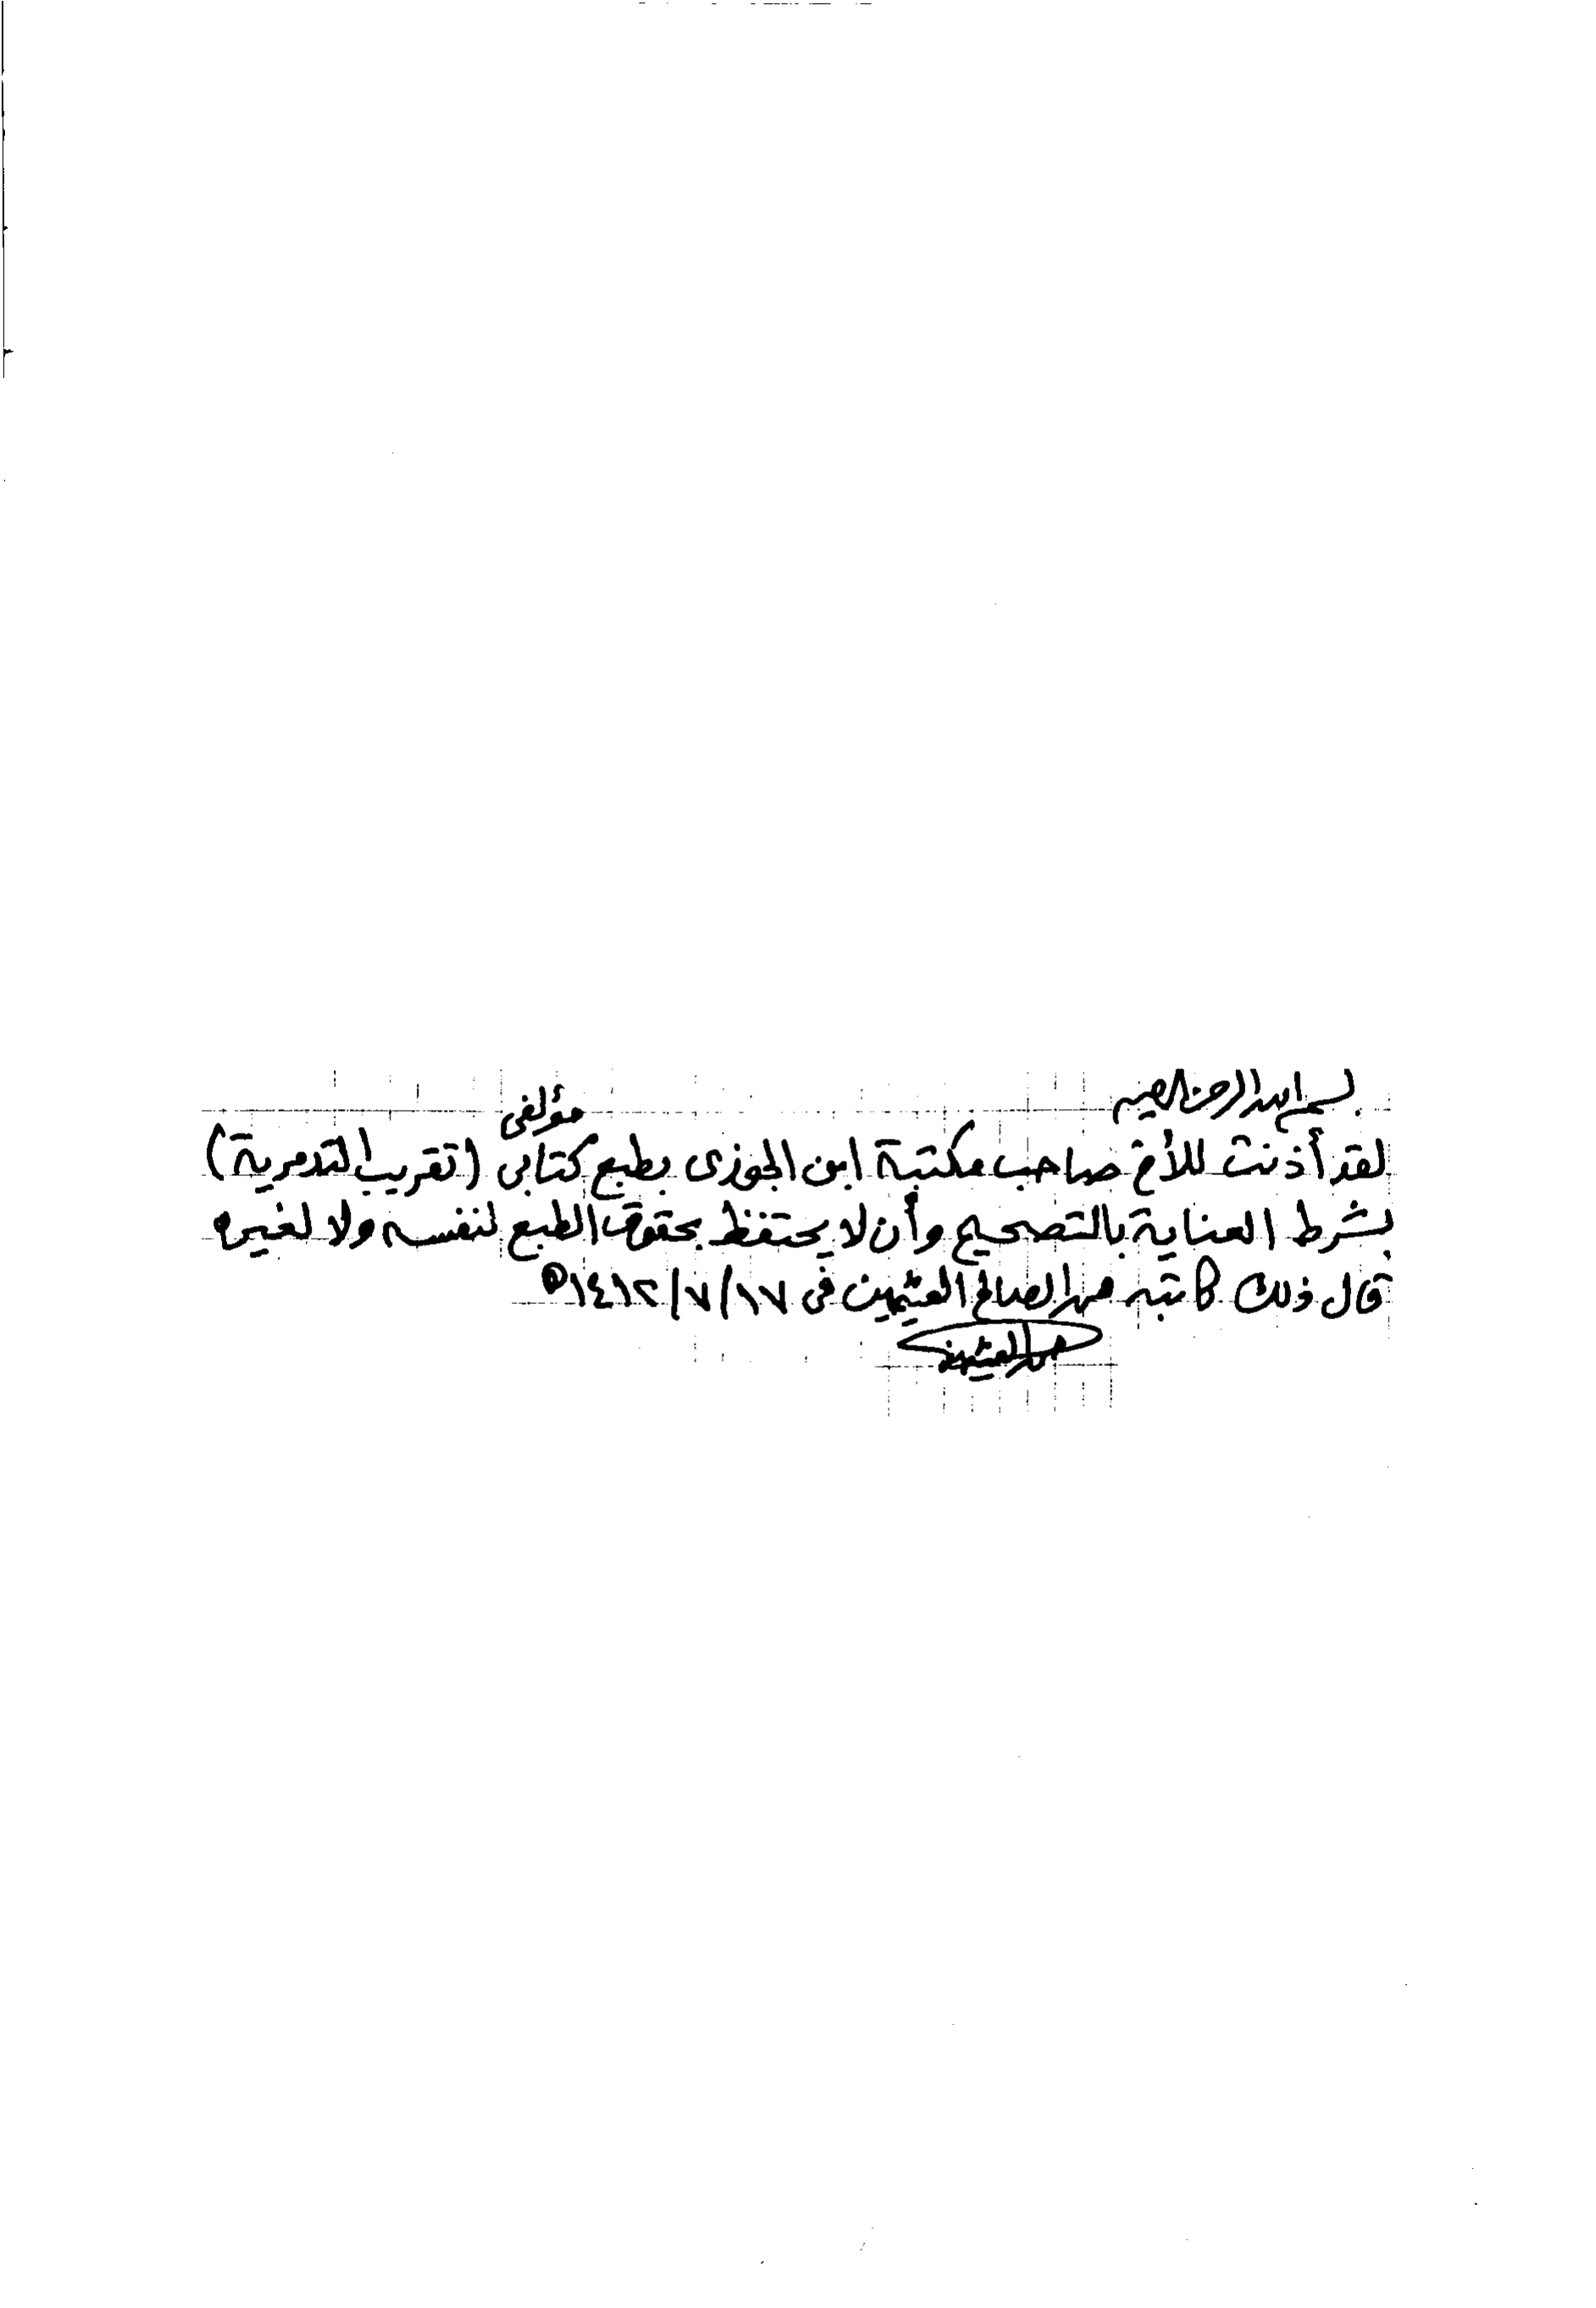 بسم الله الرحمن الرحيم
مؤلفى
لقد أذنت للأخ صاحب مكتبة ابن الجوزى بطبع كتابى (تقريب التدمرية)
بشرط العناية بالتصحيح وأن لا يحتفظ بحقوق الطبع لنفسه ولا لغيره
قال ذلك كاتبه محمد الصالح العثيمين فى ١٧/٧/١٤١٢ه
محمد العثيمين